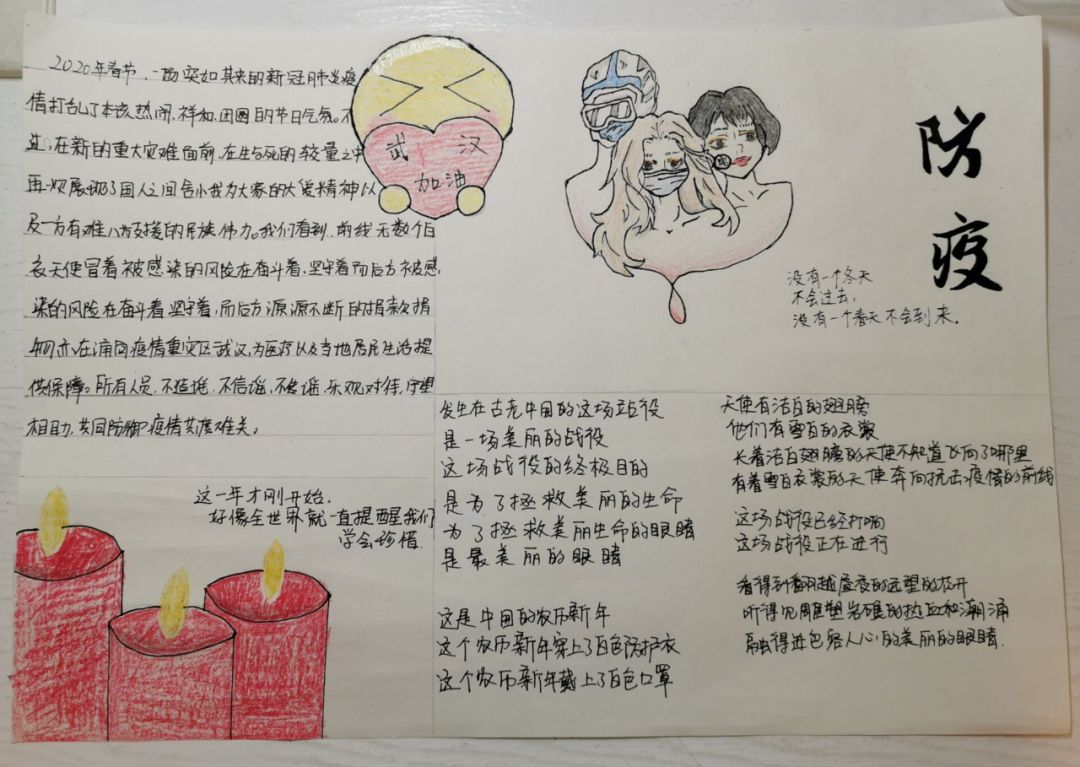 2020年春节,一场突如其来的新冠肺炎疫
情打乱了本该热闹、祥和、团圆的节日气氛。不
过,在新的重大灾难面前,在生与死的较量之中
再一次展现了国人之间舍小我为大家的大爱精神以
及一方有难八方支援的民族伟力。我们看到,前线无数个白
衣天使冒着被感染的风险在奋斗着,坚守着而后方被感
染的风险在奋斗着坚守着,而后方源源不断的捐款捐
物亦在涌向疫情重灾区武汉,为医疗以及当地居民生活提
供保障。所有人员,不造谣、不信谣、不传谣,乐观对待,守望
相助,共同防御疫情共度难关。
武汉
加油
防疫
没有一个冬天
不会过去,
没有一个春天不会到来。
这一年才刚开始,
好像全世界就一直提醒我们
学会珍惜
发生在古老中国的这场站役
是一场美丽的战役
这场战役的终极目的
是为了拯救美丽的生命
为了拯救美丽生命的眼睛
是最美丽的眼睛
这是中国的农历新年
这个农历新年穿上了白色防护衣
这个农历新年戴上了白色口罩
天使有洁白的翅膀
他们有雪白的衣裳
长着洁白翅膀的天使不知道飞向了哪里
有着雪白衣裳的天使奔向抗击疫情的前线
这场战役已经打响
这场战役正在进行
看得到翻越昼夜的远望的花开
听得见雕塑岩礁的热血和潮涌
融得进包容人心的美丽的眼睛